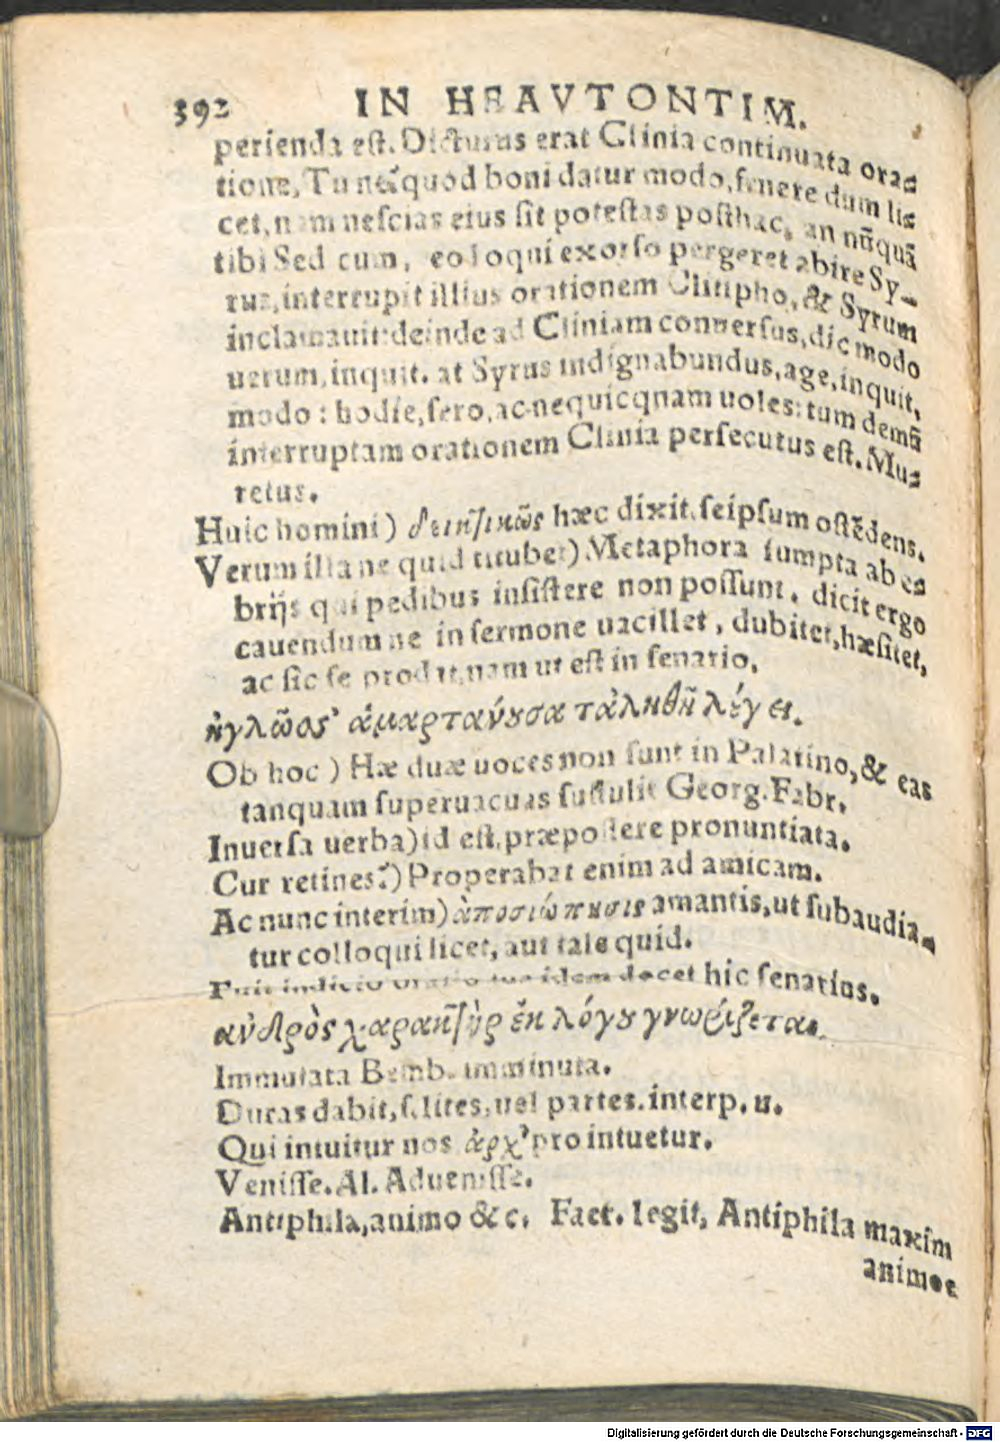 392 IN HEAVTONTIM.
perienda est. Dicturus erat Clinia continuata ora=
tione, Tu quod boni datur modo, fruere dum li=
cet, nam nescias eius sit potestas posthac, an nũquã
tibi Sed cum, eo loqui exorso pergeret abire Sy-
rus, interrupit illius orationem Clitipho, & Syrum
inclamauit: deinde ad Cliniam conuersus, dic modo
uerum, inquit. at Syrus indignabundus, age, inquit,
modo: hodie, sero, ac nequicquam uoles: tum demũ
interruptam orationem Clinia persecutus est. Mu=
retus.
Huic homini) δεικτικῶς hæc dixit, seipsum ostẽdens.
Verum illa ne quid titubet) Metaphora sumpta ab e=
brijs qui pedibus insistere non possunt. dicit ergo
cauendum ne in sermone uacillet, dubitet, hæsitet,
ac sic se prodat, nam ut est in senario,
ἡ γλῶσσ' ἁμαρτάνουσα τἀληθῆ λέγει.
Ob hoc) Hæ duæ uoces non sunt in Palatino, & eas
tanquam superuacuas sustulit Georg. Fabr.
Inuersa uerba) id est, præpostere pronuntiata.
Cur retines?) Properabat enim ad amicam.
Ac nunc interim) ἀποσιώπησις amantis, ut subaudia-
tur colloqui licet, aut tale quid.
Fuit indicio oratio tua idem docet hic senarius.
ἀνδρὸς χαρακτὴρ ἐκ λόγου γνωρίζεται.
Immutata Bemb. imminuta.
Duras dabit, s. lites, uel partes. interp. u.
Qui intuitur nos ἀρχ' pro intuetur.
Venisse. Al. Aduenisse.
Antiphila, animo &c. Faer. legit, Antiphila maxim
animo e
Digitalisierung gefördert durch die Deutsche Forschungsgemeinschaft - DFG